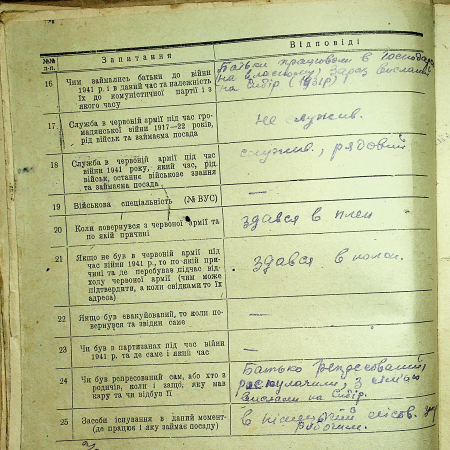 №№ п.п.
Запитання
Відповіді
16
Чим займались батьки до війни
1941 р. і в даний час та належність
їх до комуністичної партії і з
якого часу
Батьки працювали в господар.
на власному, зараз вислані
на Сибір
17
Служба в червоній армії під час гро-
мадянської війни 1917—22 років,
рід військ та займаєма посада
не служив.
18
Служба в червоній армії під час
війни 1941 року, який час, рід
військ, останнє військове звання
та займаєма посада
служив, рядовий
19
Військова спеціальність (№ ВУС)
—
20
Коли повернувся з червоної армії та
по якій причині
здався в плен
21
Якщо не був в червоній армії під
час війни 1941 р., то по якій при-
чині та де перебував підчас від-
ходу червоної армії (чим може
підтвердити, а коли свідками то їх
адреса)
здався в полон.
22
Якщо був евакуйований, то коли по-
вернувся та звідки саме
—
23
Чи був в партизанах під час війни
1941 р. та де саме і який час
—
24
Чи був репресований сам, або хто з
родичів, коли і защо, яку мав
кару та чи відбув її
Батько репресований,
з сімією
вислані на Сибір.
25
Засоби існування в даний момент-
(де працює і яку займає посаду)
в
робочим.